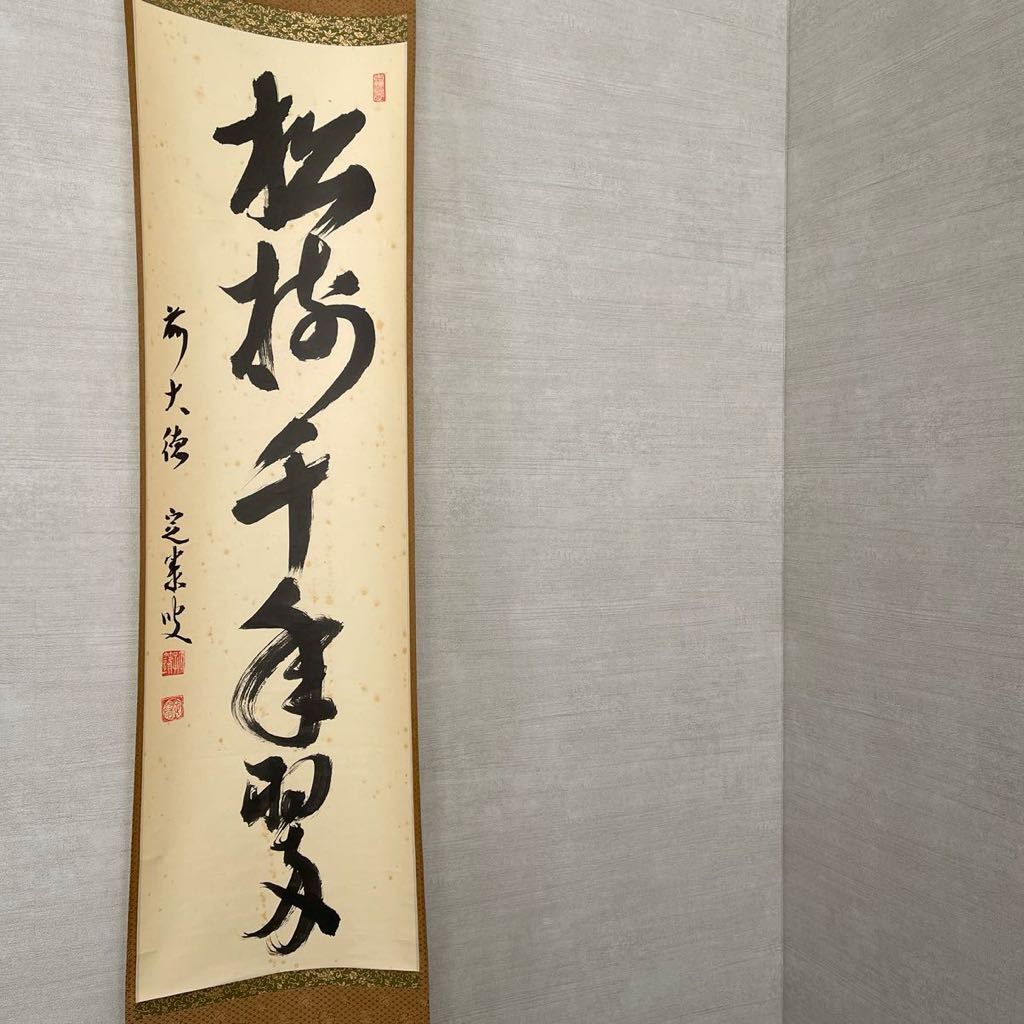 松樹千年翠
前大徳 定業叟